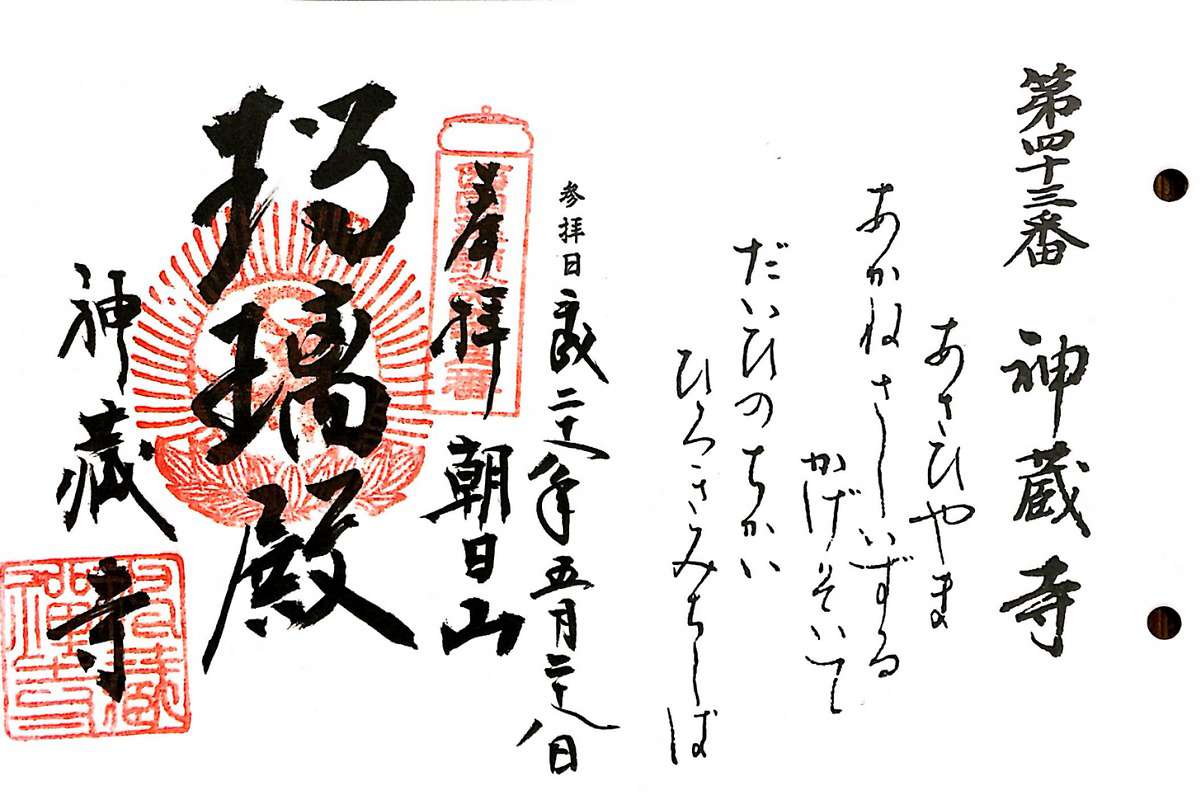 第四十三番 神蔵寺
あさひやま
あかねさしいずる
かげそいて
だいひのちかい
ひろきみちしば
参拝日 平成二十八年五月二十八日
奉拝 朝日山
瑠璃殿
神蔵寺
神蔵禅寺